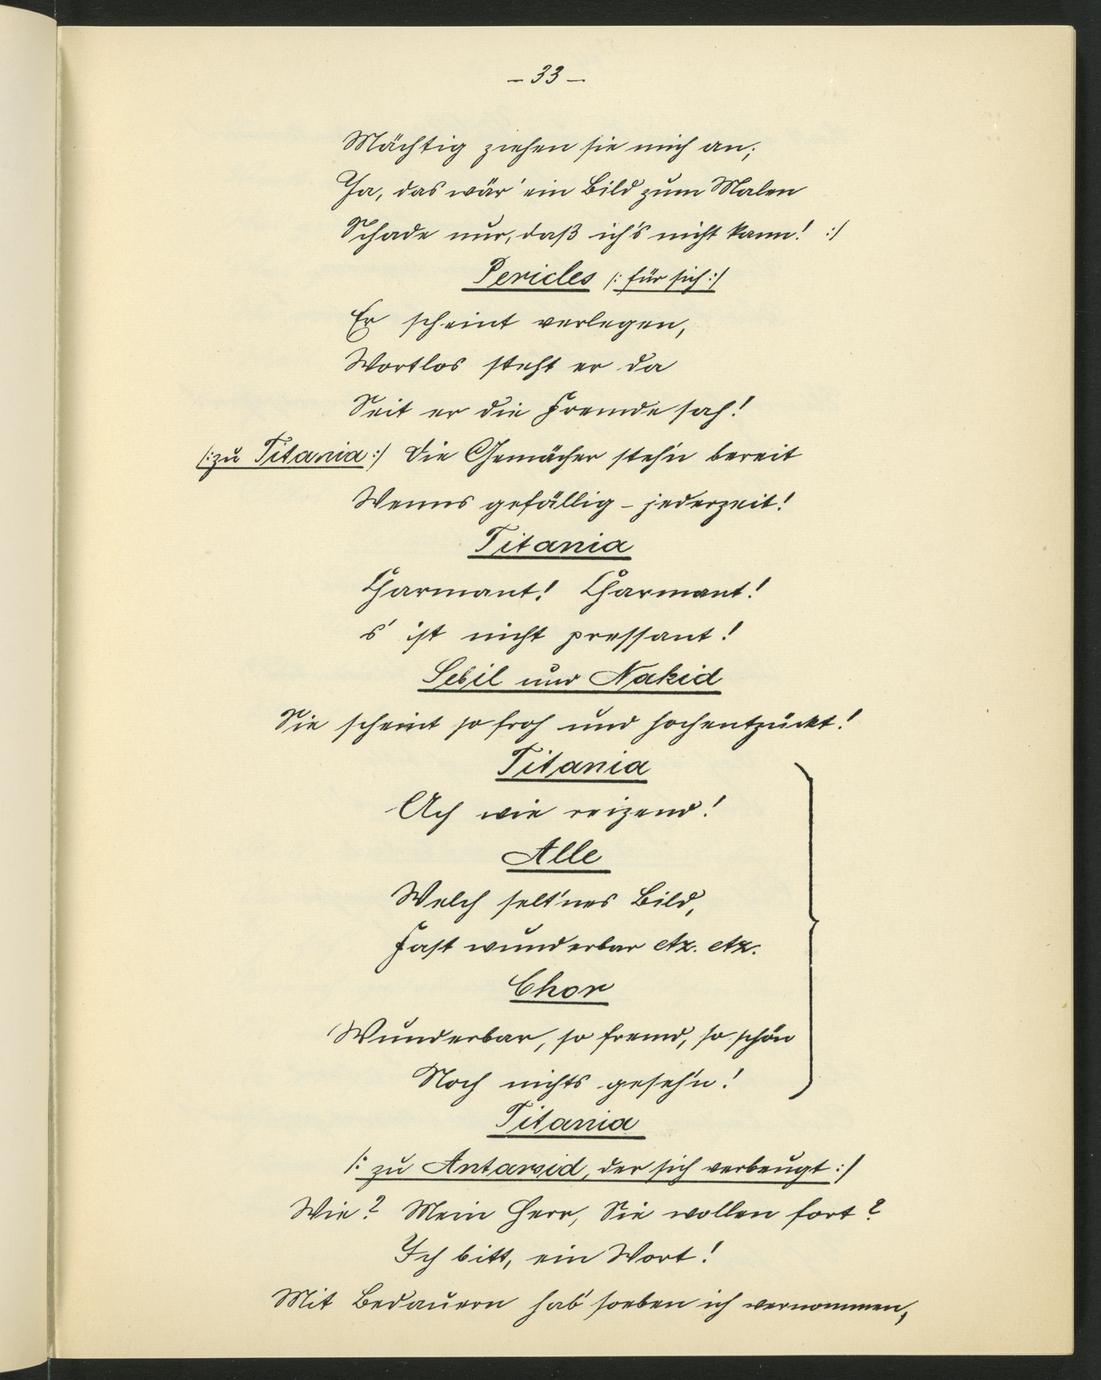 – 33 –
Mächtig ziehen sie mich an;
Ja, das wär' ein Bild zum Malen
Schade nur, daß ich's nicht kann! :/
Pericles /: für sich :/
Er scheint verlegen,
Wortlos steht er da
Seit er die Fremde sah!
/: zu Titania :/ Die Gemächer steh'n bereit
Wenns gefällig – jederzeit!
Titania
Charmant! Charmant!
s' ist nicht pressant!
Sebil und Nakid
Sie scheint so froh und hochentzückt!
Titania
Ach wie reizend!
Alle
Welch selt'nes Bild,
Fast wunderbar etz. etz.
Chor
Wunderbar, so fremd, so schön
Noch nichts geseh'n!
Titania
/: zu Antarsid, der sich verbeugt :/
Wie? Mein Herr, Sie wollen fort?
Ich bitt, ein Wort!
Mit Bedauern hab' soeben ich vernommen,